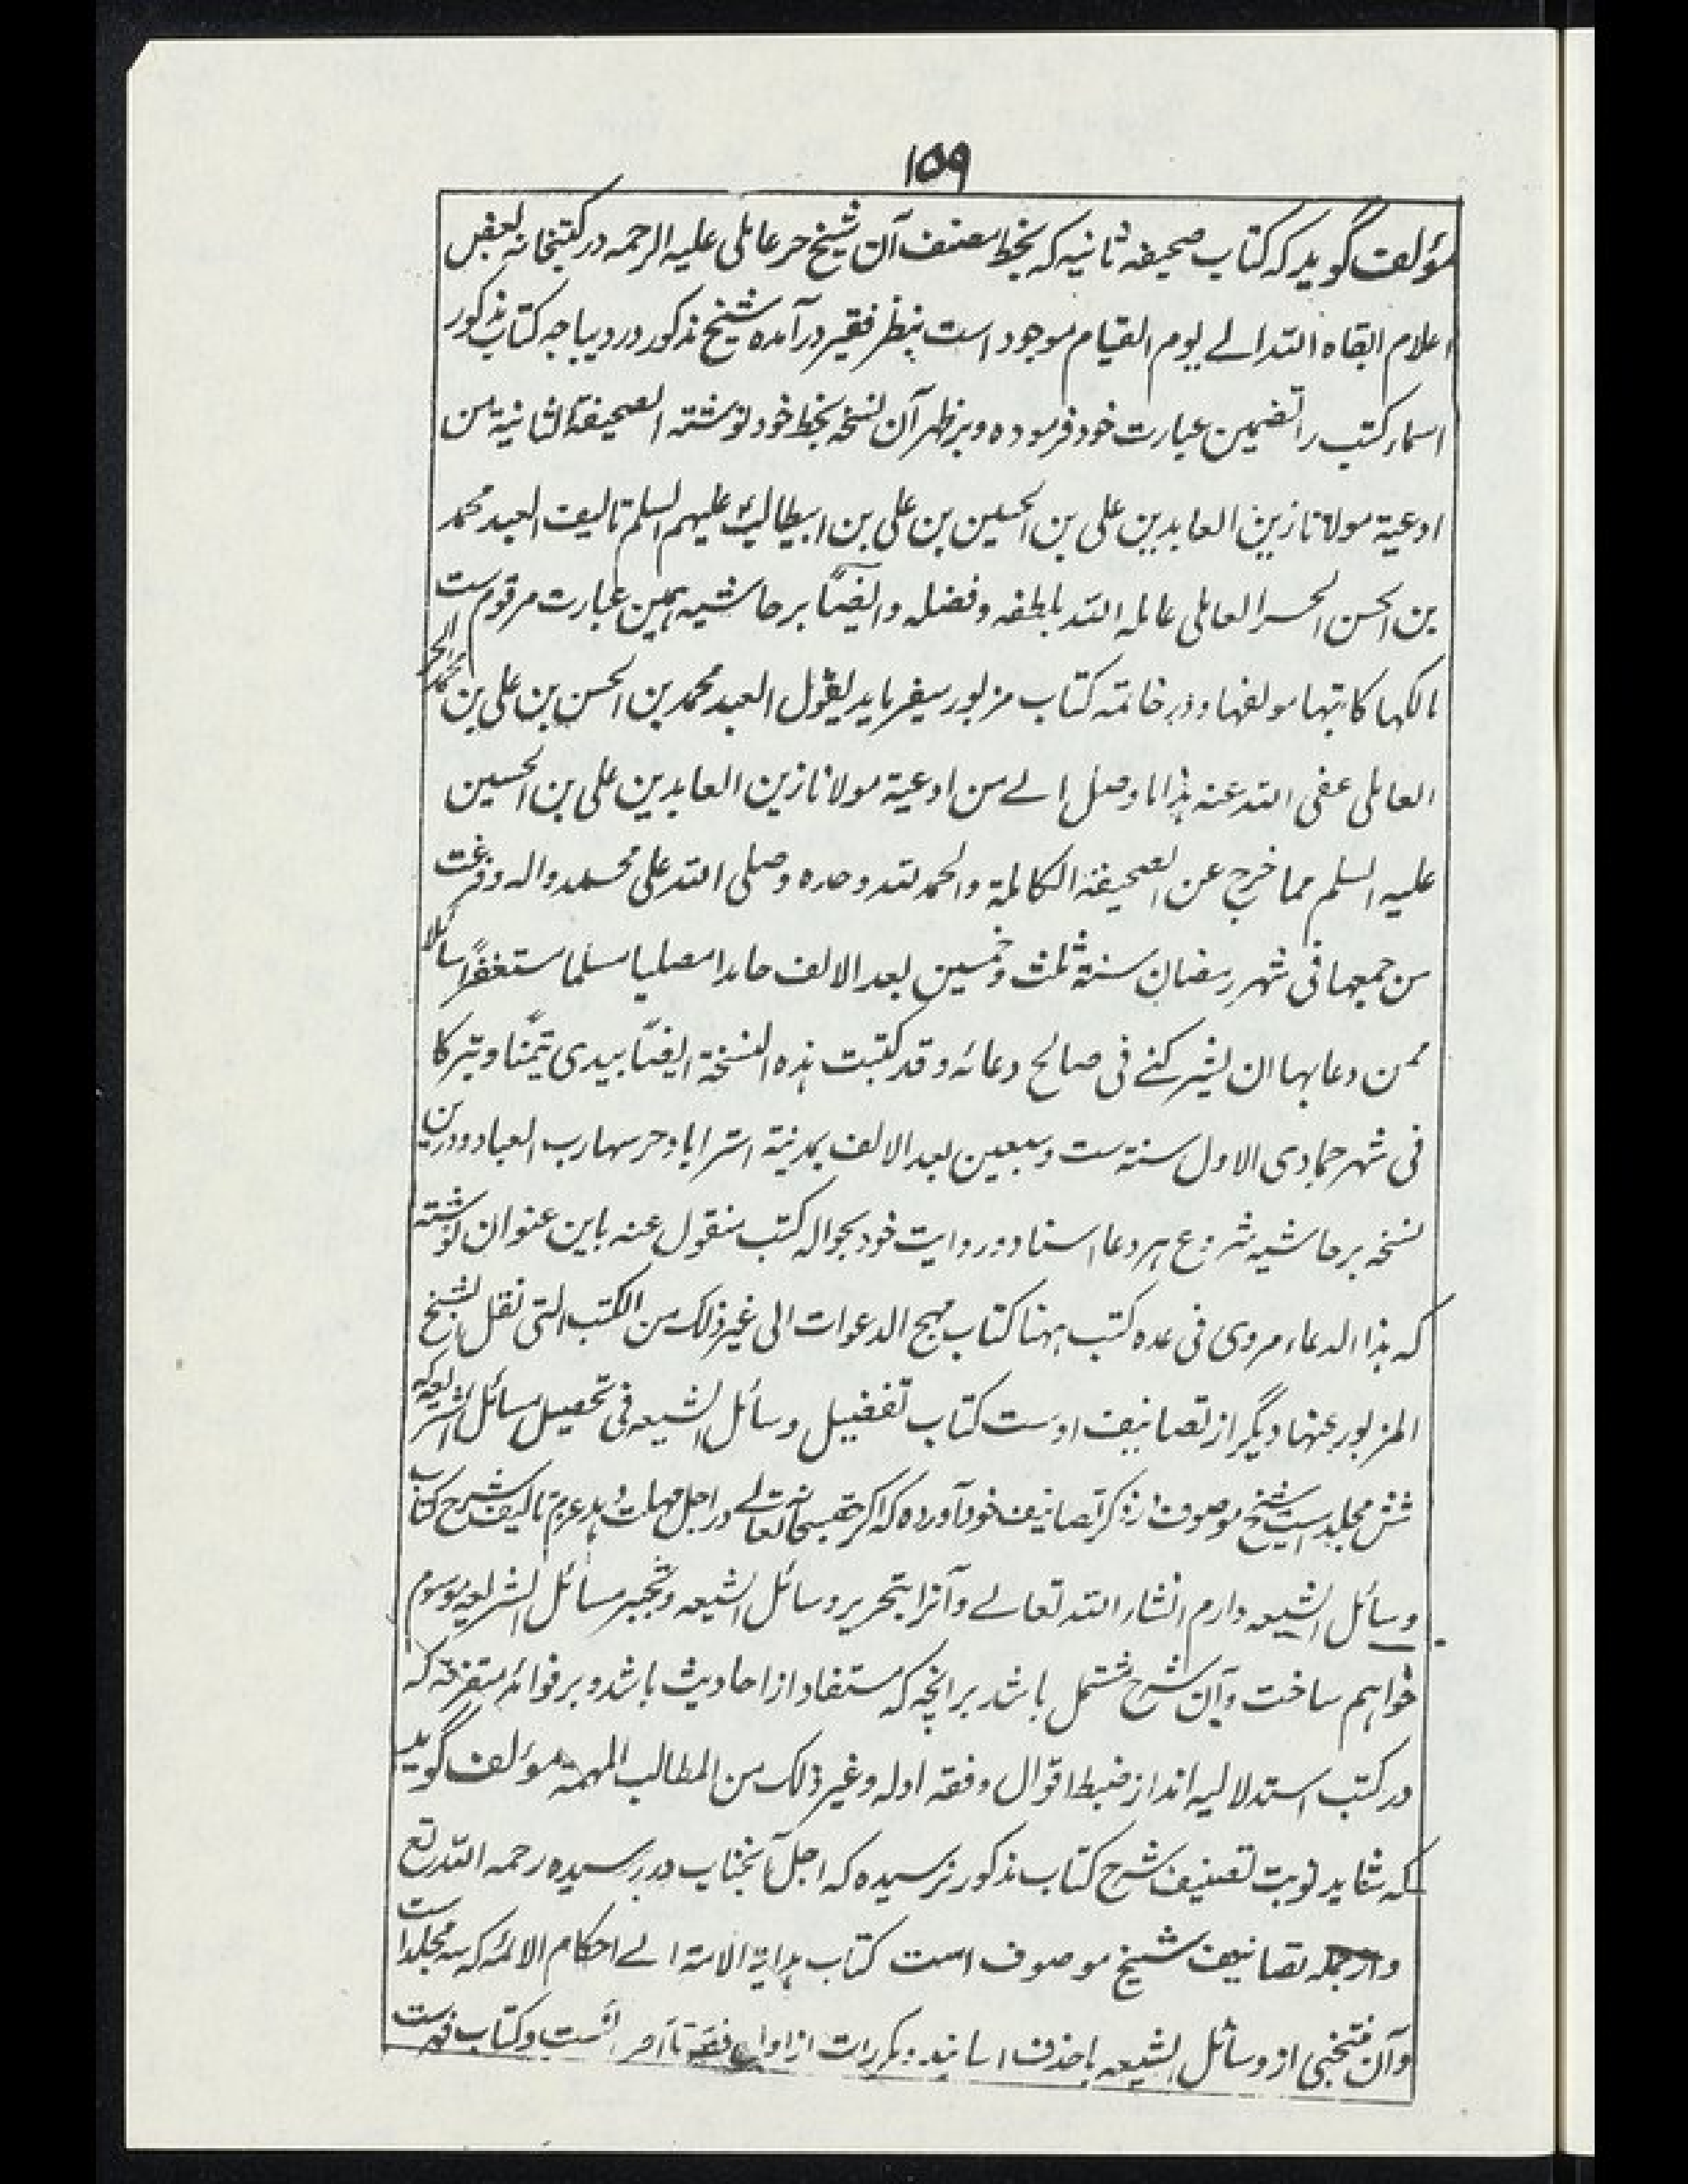 ۱۵۹
مؤلف گوید که کتاب صحیفه ثانیه که بخط مصنف آن شیخ حر عاملی علیه الرحمه در کتبخانه بعض
اعلام ابقاه الله الے یوم القیام موجود است بنظر فقیر در آمده شیخ مذکور در دیباجه کتاب مذکور
اسماء کتب را تضمین عبارت خود فرموده و بر ظهر آن نسخه بخط خود نوشته الصحیفة الثانیة من
ادعیة مولانا زین العابدین علی بن الحسین بن علی بن ابیطالب علیهم السلم تالیف العبد محمد
بن الحسن الحر العاملی عامله الله بلطفه و فضله و ایضًا بر حاشیه همین عبارت مرقوم است
مالکها کاتبها مولفها و در خاتمه کتاب مزبور میفرماید یقول العبد محمد بن الحسن بن علی بن محمد الحر
العاملی عفی الله عنه هذا ما وصل الے من ادعیة مولانا زین العابدین علی بن الحسین
علیه السلم مما خرج عن الصحیفة الکاملة والحمد لله وحده وصلی الله علی محمد واله وفرغت
من جمعها فی شهر رمضان سنة ثلث وخمسین بعد الالف حامدا مصلیا مسلما مستغفرًا سائلا
ممن دعا بها ان یشرکنے فی صالح دعائه وقد کتبت هذه النسخة ایضًا بیدی تیمنًا وتبرکا
فی شهر جمادی الاول سنة ست وسبعین بعد الالف بمدینة استراباد حرسها رب العباد و درین
نسخه بر حاشیه شروع هر دعا اسناد و روایت خود بحواله کتب منقول عنه باین عنوان نوشته
که هذا الدعاء مروی فی عده کتب منها کتاب مهج الدعوات الی غیر ذلک من الکتب التی نقل الشیخ
المزبور عنها دیگر از تصانیف اوست کتاب تفضیل وسائل الشیعه فی تحصیل مسائل الشریعه که
شش مجلد است شیخ موصوف در ذکر تصانیف خود آورده که اگر حقسبحانه تعالے در اجل مهلت دهد عزم تالیف شرح کتاب
وسائل الشیعه دارم انشاء الله تعالے و آنرا بتحریر وسائل الشیعه وتحبیر مسائل الشریعه موسوم
خواهم ساخت و آن شرح مشتمل باشد بر انچه که مستفاد از احادیث باشد و بر فوائد متفرقه که
در کتب استدلالیه اند از ضبط اقوال و فقه ادله و غیر ذلک من المطالب المهمة مؤلف گوید
که شاید نوبت تصنیف شرح کتاب مذکور نرسیده که اجل آنجناب در رسیده رحمه الله تع
و از جمله تصانیف شیخ موصوف است کتاب هدایة الامة الے احکام الائمه که سه مجلد است
و آن منتخبی از وسائل الشیعه باحذف اسانید و مکررات از اول فقه تا آخر انست و کتاب فهرست